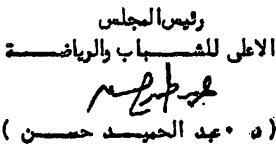 رئيس المجلس
الاعلى للشباب والرياضة
( د . عبد الحميد حسن )